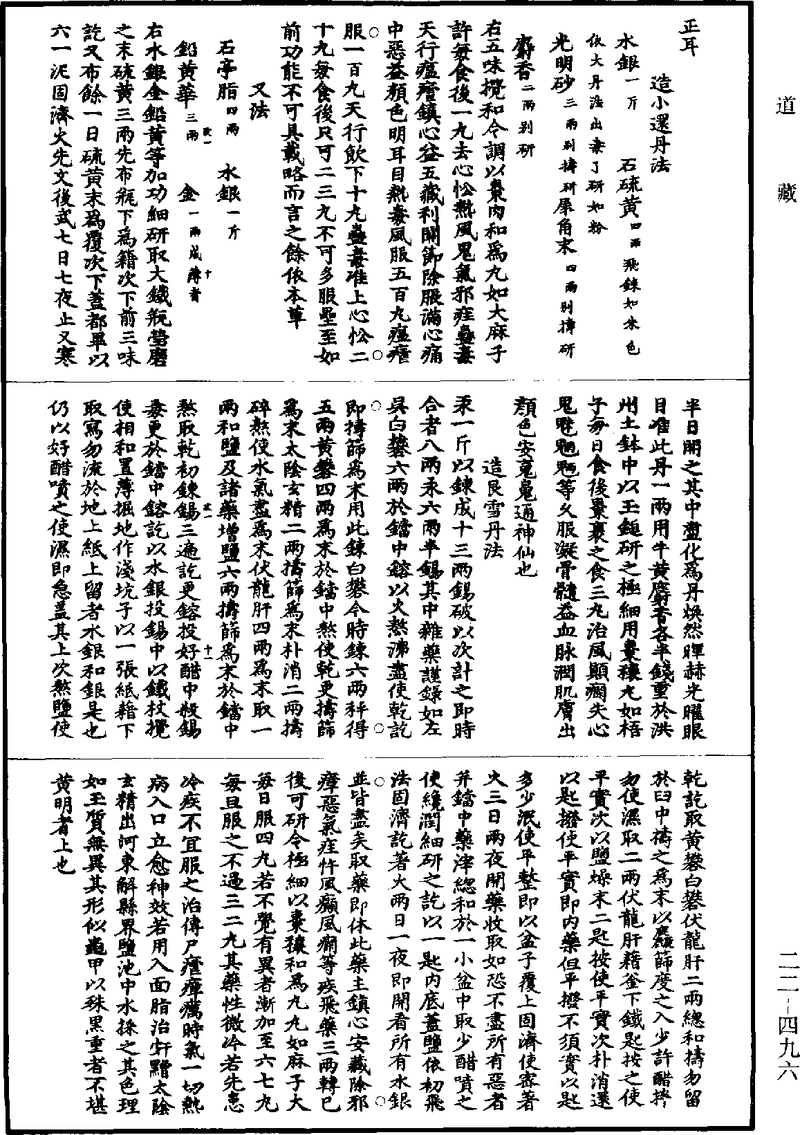 道藏
二二-四九六
正耳
造小還丹法
水銀一斤　石硫黃四兩飛鍊如朱色
依大丹法出毒了研如粉
光明砂三兩別擣研犀角末四兩別擣研
麝香二兩別研
右五味攪和令調以棗肉和為丸如大麻子
許每食後一丸去心忪熱風鬼氣邪疰蠱毒
天行瘟瘧鎮心益五藏利關節除脹滿心痛
中惡益顏色明耳目熱毒風服五百丸瘟瘧
服一百丸天行飲下十丸蠱毒准上心忪二
十丸每食後只可二三丸不可多服壘至如
前功能不可具載略而言之餘依本草
又法
石亭脂四兩　水銀一斤
鉛黃華三兩　金一兩成薄者
右水銀金鉛黃等加功細研取大鐵瓶瑩磨
之末硫黃三兩先布瓶下為籍次下前三味
訖又布餘一日硫黃末為覆次下蓋都畢以
六一泥固濟火先文後武七日七夜止又寒
半日開之其中盡化為丹煥然暉赫光曜眼
目准此丹一兩用牛黃麝香各半錢重於洪
州土鉢中以玉鎚研之極細用棗穰丸如梧
子每日食後棗裹之食三丸治風顛癇失心
鬼魅魍魎等久服凝骨髓益血脉潤肌膚出
顏色安䰟䰟通神仙也
造艮雪丹法
汞一斤以鍊成十三兩錫破以次計之即時
合者八兩汞六兩半錫其中雜藥謹錄如左
具白礬六兩於鐺中鎔以火熱沸盡使乾訖
即擣篩為末用此鍊白礬今時鍊六兩秤得
五兩黃礬四兩為末於鐺中熬使乾更擣篩
為末太陰玄精二兩擣篩為末朴消二兩擣
碎熬使水氣盡為末伏龍肝四兩為末取一
兩和鹽及諸藥增鹽六兩擣篩為末於鐺中
熬取乾初鍊錫三遍訖更鎔投好醋中殺錫
毒更於鐺中鎔訖以水銀投錫中以鐵杖攪
使相和置薄掘地作淺坑子以一張紙籍下
取寫勿流於地上紙上留者水銀和銀是也
仍以好醋噴之使濕即急蓋其上次熬鹽使
乾訖取黃礬白礬伏龍肝二兩總和擣勿留
於臼中擣之為末以麤篩度之入少許醋拌
勿使濕取二兩伏龍肝籍釜下鐵匙按之使
平實次以鹽燥末二匙按使平實次朴消還
以匙撥使平實即內藥但平撥不須實以匙
多少泯使平整即以盆子覆上固濟使密著
火三日兩夜開藥收取如恐不盡所有惡者
并鐺中藥滓總和於一小盆中取少醋噴之
使纔潤細研之訖以一匙內底蓋鹽依初飛
法固濟訖著火兩日一夜即開看所有水銀
並皆盡矣取藥即休此藥主鎮心安藏除邪
瘴惡氣疰忤風癲風癇等疾飛藥三兩轉已
後可研令極細以棗穰和為丸丸如麻子大
每日服四丸若不覺有異者漸加至六七丸
每旦服之不過三二丸其藥性微冷若先患
冷疾不宜服之治傳尸瘧瘴癘時氣一切熱
病入口立愈神效若用入面脂治皯䵳太陰
玄精出河東解縣界鹽池中水採之其色理
如玉質無異其形似龜甲以殊黑重者不堪
黃明者上也